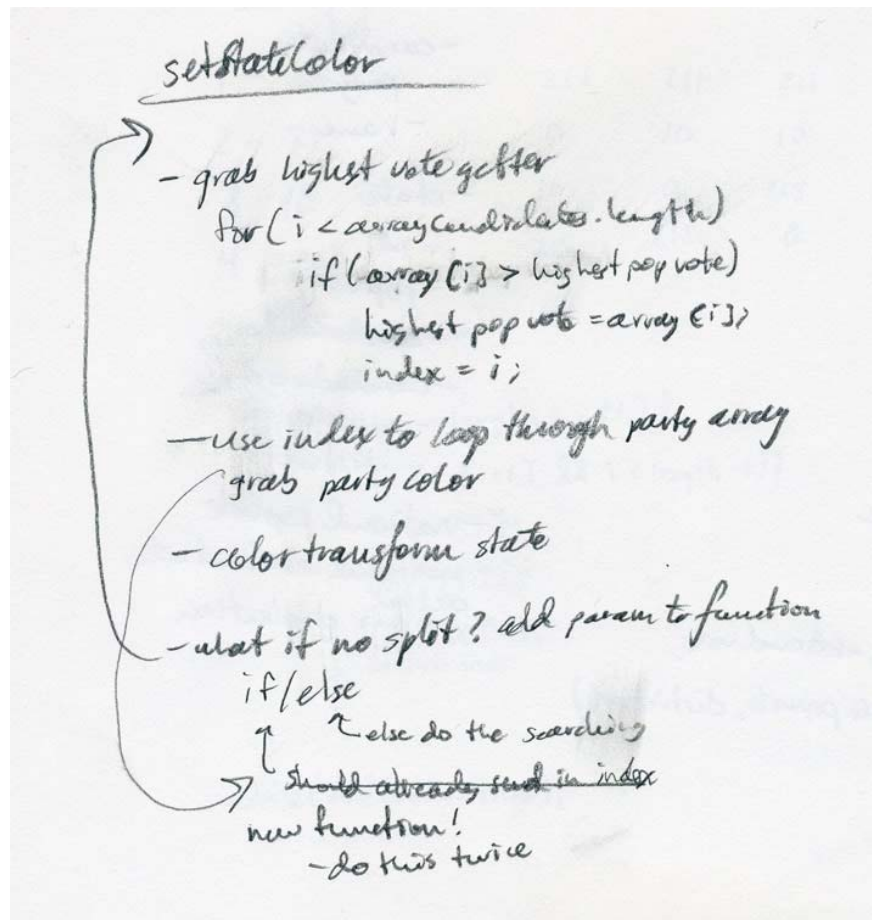 setStateColor
- grab highest vote getter
for(i < arrayCandidates.length)
if(array[i] > highest pop vote)
highest pop vote = array[i];
index = i;
- use index to loop through party array
grab party color
- color transform state
- what if no split? add param to function
if/else
else do the searching
should already send in index
new function!
- do this twice